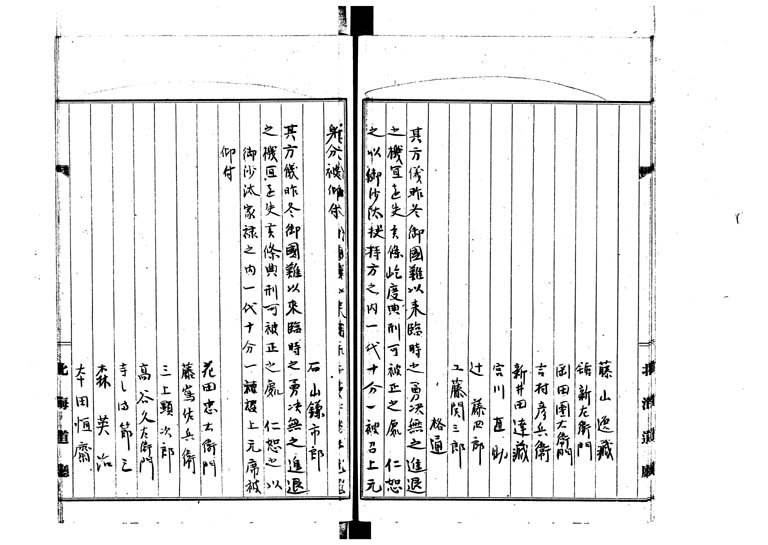 藤山逸藏
新左衛門
岡田團右衛門
吉村彦兵衛
新井田達藏
宮川直助
辻藤四郎
工藤関三郎
格通
其方儀昨冬御國難以来臨時之勇决無之進退
之機宜を失ㇶ候條屹度典刑可被正之處仁恕
之以御沙汰扶持方之内一代十分一被召上元
身分被仰付
石山鎌市郎
其方儀昨冬御國難以來臨時之勇决無之進退
之機宜を失ㇶ候條典刑可被正之處仁恕之以
御沙汰家禄之内一代十分一被召上元席被
仰付
花田忠右衛門
藤嶌佐兵衛
三上顕次郎
高谷久左衛門
森英治
本田恒齋
北海道廳